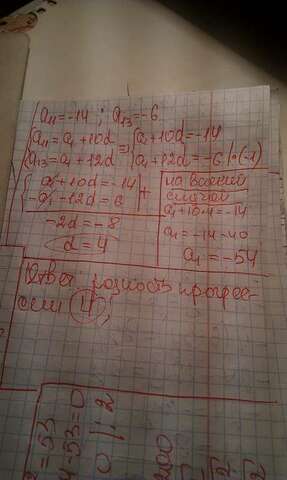 a₁₁ = -14 ; a₁₃ = -6
{a₁₁ = a₁ + 10d => {a₁ + 10d = -14
{a₁₃ = a₁ + 12d {a₁ + 12d = -6 | · (-1)
{a₁ + 10d = -14 | +
-a₁ - 12d = 6
-2d = -8
d = 4
на всякий
случай
a₁ + 10·4 = -14
a₁ = -14 - 40
a₁ = -54
Ответ: разность прогрес-
сии 4,
= 53
- 53 = 0
0 | : 2
200